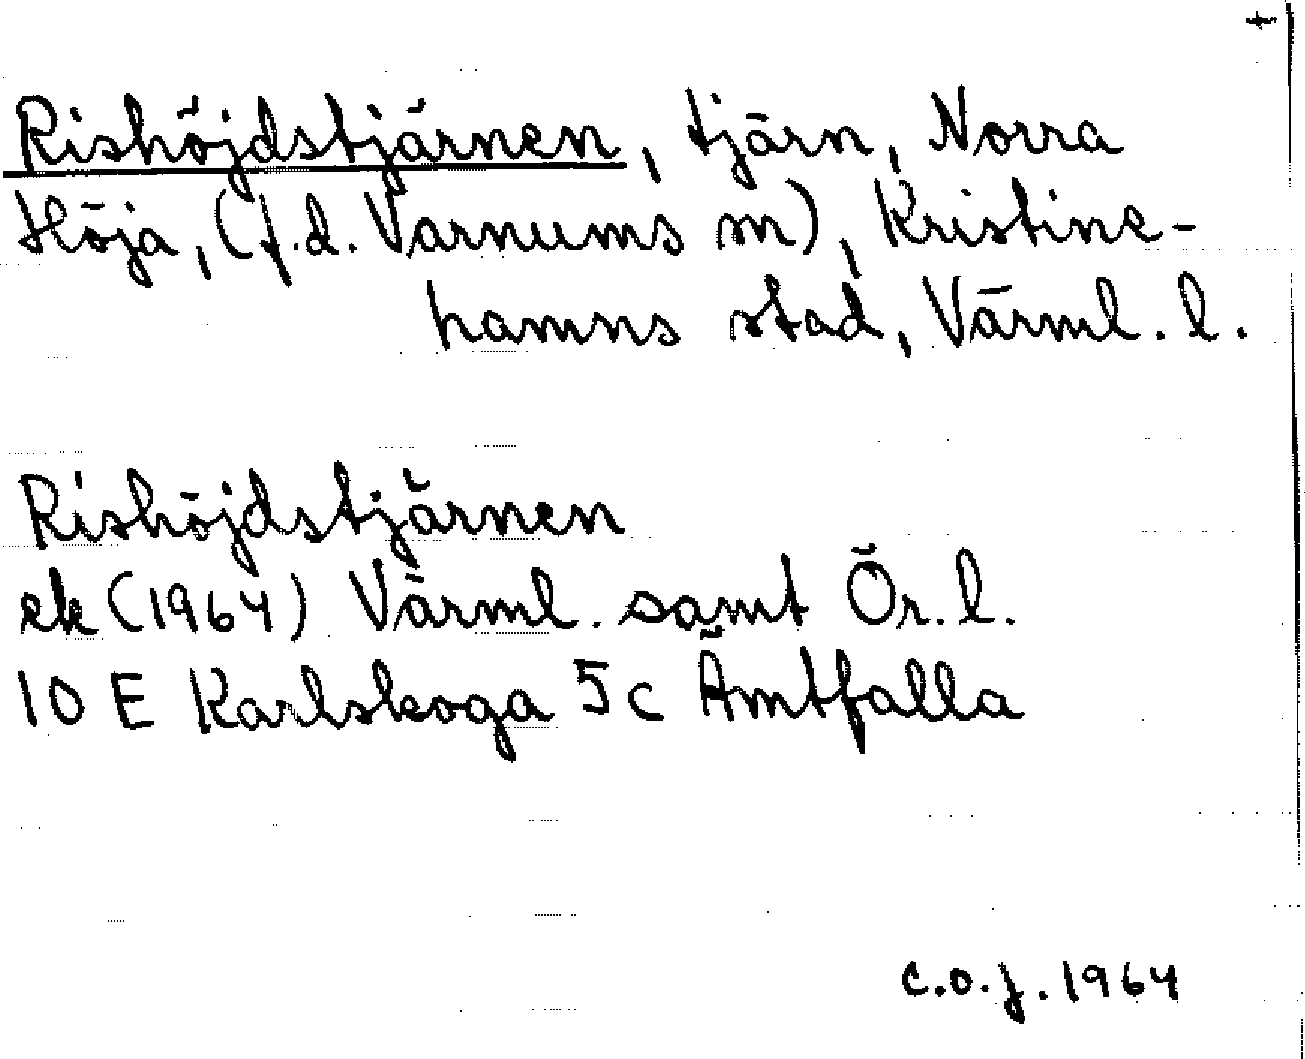 Rishöjdstjärnen, tjärn, Norra
Höja, (f.d. Varnums sn), Kristine-
hamns stad, Värml. l.
Rishöjdstjärnen
ek (1964) Värml. samt Ör. l.
10 E Karlskoga 5c Ämtfalla
C.O.J. 1964